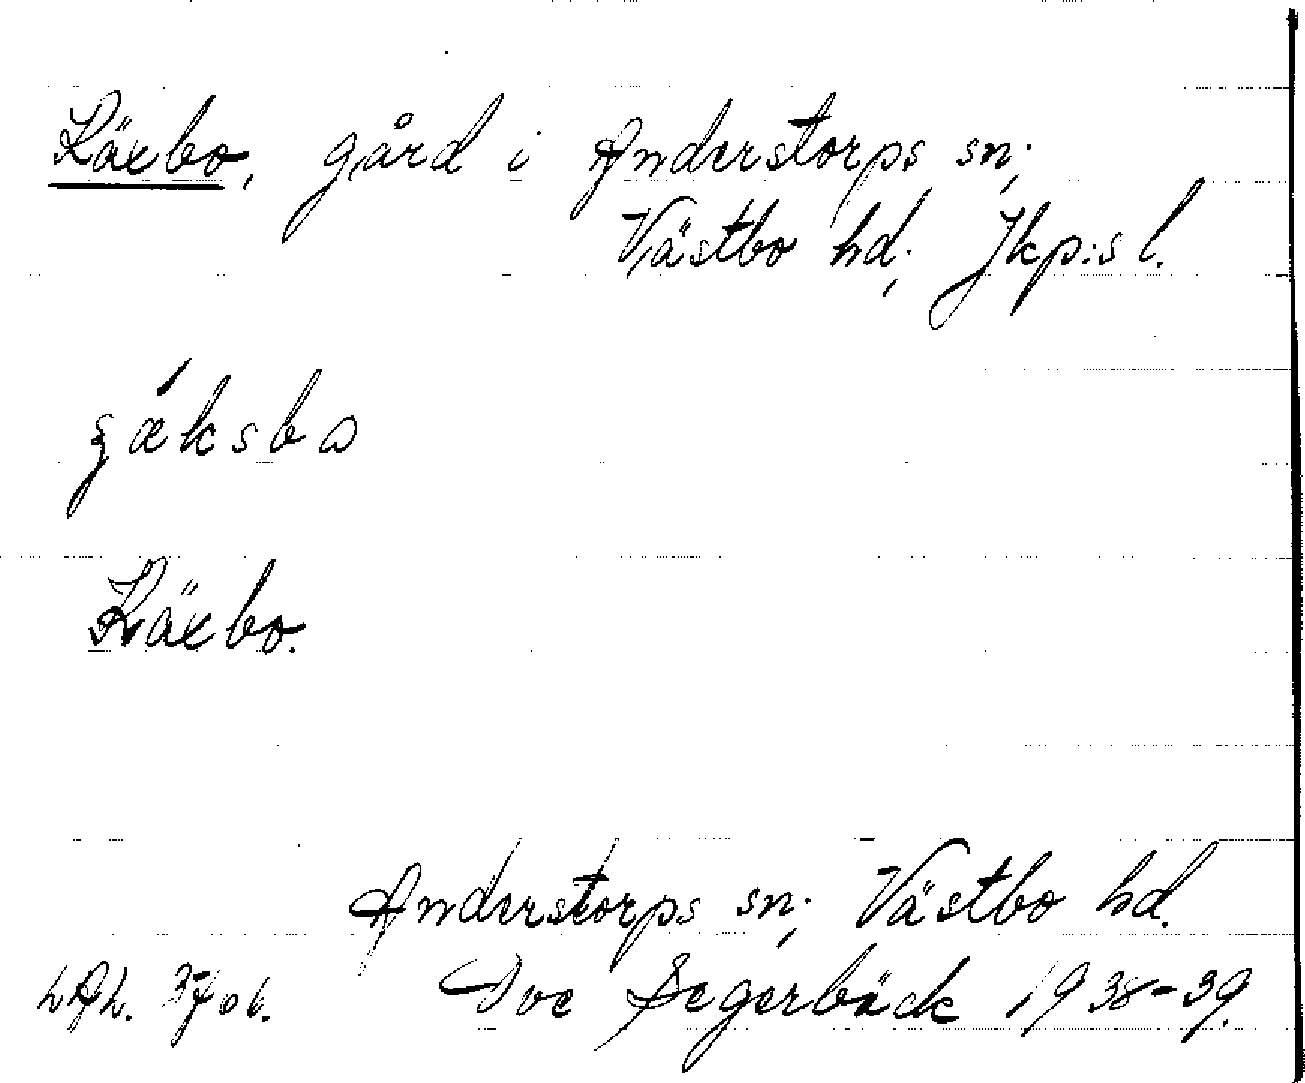 Käxbo, gård i Anderstorps sn.,
Västbo hd., Jkp:s l.
ʂǽksbɷ
Käxbo.
Anderstorps sn., Västbo hd.
Ove Segerbäck 1938-39.